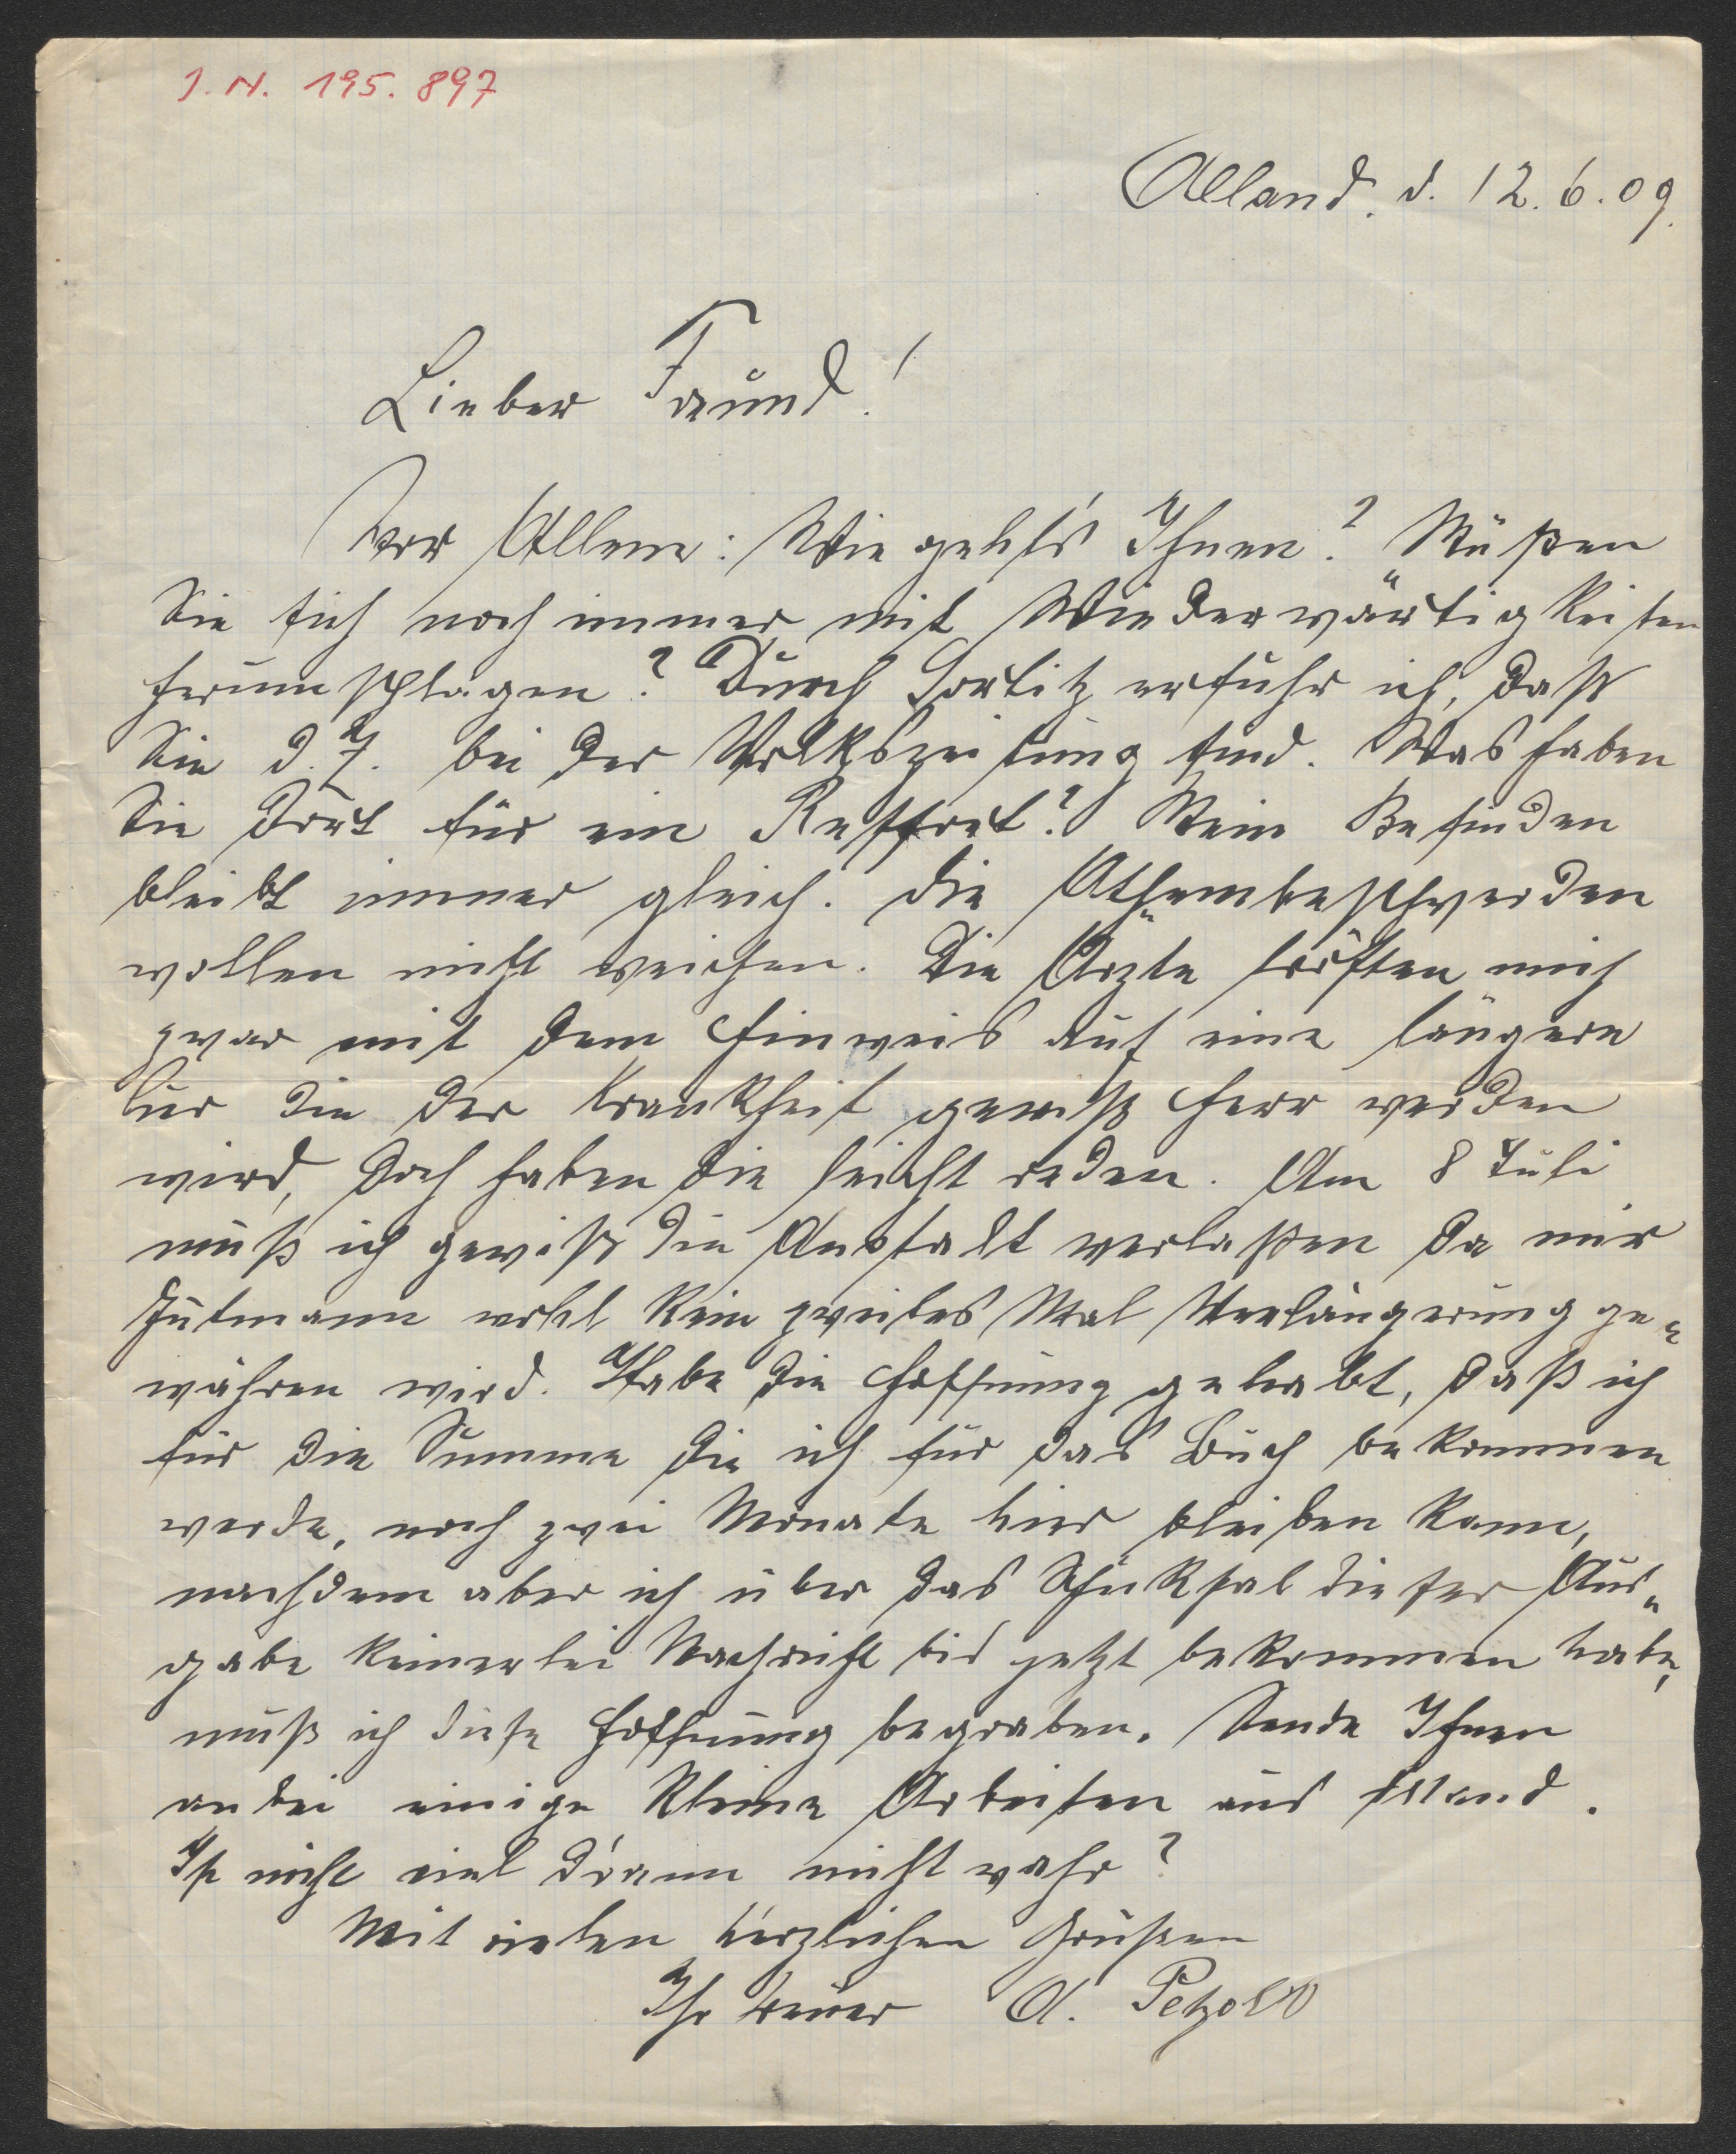 I. N. 195.897
Alland. d. 12.6.09.
Lieber Freund!
Vor Allem: Wie geht's Ihnen? Müßen
Sie sich noch immer mit Wiederwärtigkeiten
herumschlagen? Durch Sortitz erfuhr ich, daß
Sie d. Z. bei der Volkszeitung sind. Was haben
Sie dort für ein Ressort? Mein Befinden
bleibt immer gleich. Die Athembeschwerden
wollen nicht weichen. Die Ärzte trösten mich
zwar mit dem Hinweis auf eine längere
Kur die der Krankheit gewiß Herr werden
wird, doch haben die leicht reden. Am 8 Juli
muß ich gewiß die Anstalt verlaßen da mir
Gutmann wohl kein zweites Mal Verlängerung ge„
währen wird. Habe die Hoffnung gehabt, daß ich
für die Summe die ich für das Buch bekommen
werde, noch zwei Monate hier bleiben kann,
nachdem aber ich über das Schicksal dieser Aus„
gabe keinerlei Nachricht bis jetzt bekommen habe,
muß ich diese Hoffnung begraben. Sende Ihnen
anbei einige kleine Arbeiten aus Alland.
Ist nicht viel d'rann nicht wahr?
Mit vielen herzlichen Grüßen
Ihr treuer A. Petzold